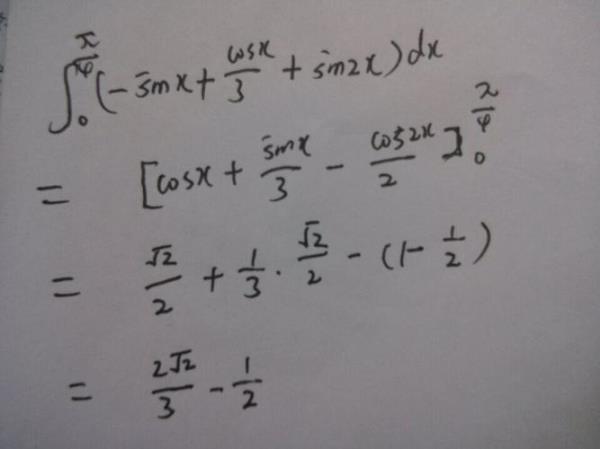 ∫₀^(π/4) (-sinx + cosx/3 + sin2x) dx
= [cosx + sinx/3 - cos2x/2]₀^(π/4)
= √2/2 + 1/3 · √2/2 - (1 - 1/2)
= 2√2/3 - 1/2